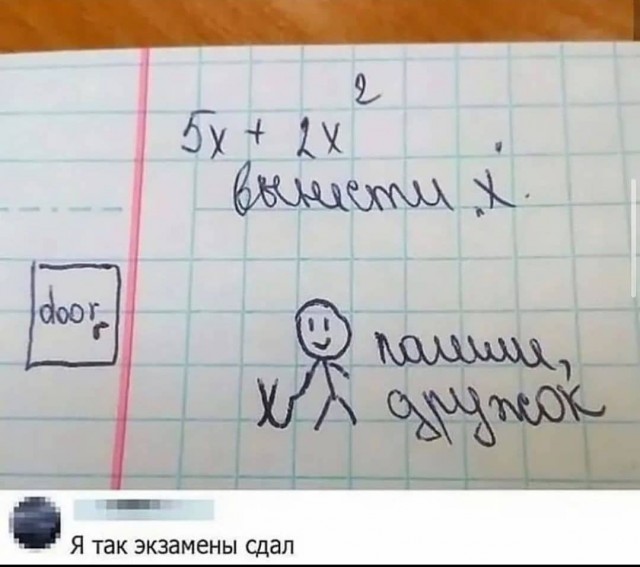 5x + 2x²
вынести x.
door
пошли,
дружок
Я так экзамены сдал